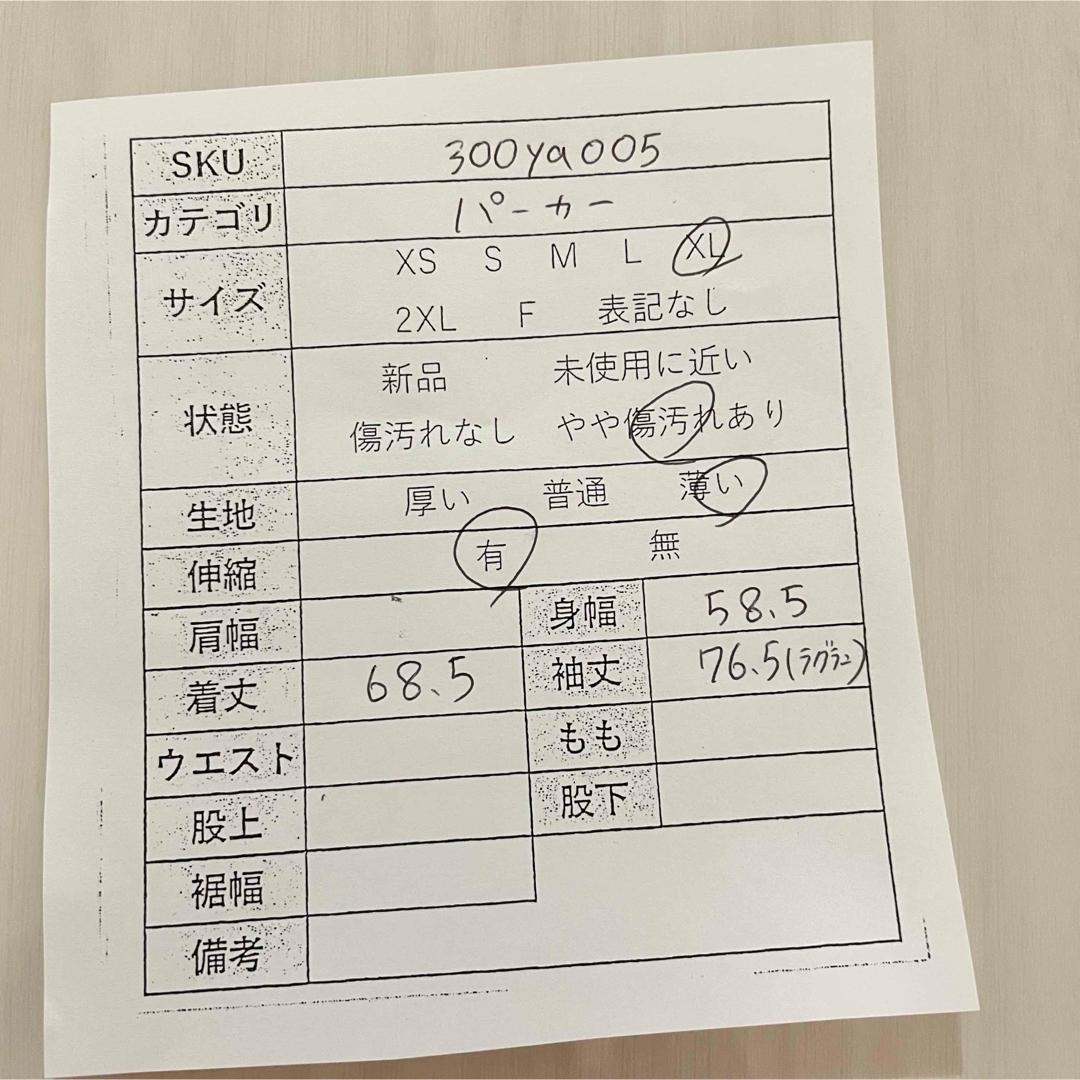 SKU 300ya005
カテゴリ パーカー
サイズ XS S M L XL
2XL F 表記なし
状態 新品 未使用に近い
傷汚れなし やや傷汚れあり
生地 厚い 普通 薄い
伸縮 有 無
肩幅 身幅 58.5
着丈 68.5 袖丈 76.5(ラグラン)
ウエスト もも
股上 股下
裾幅
備考